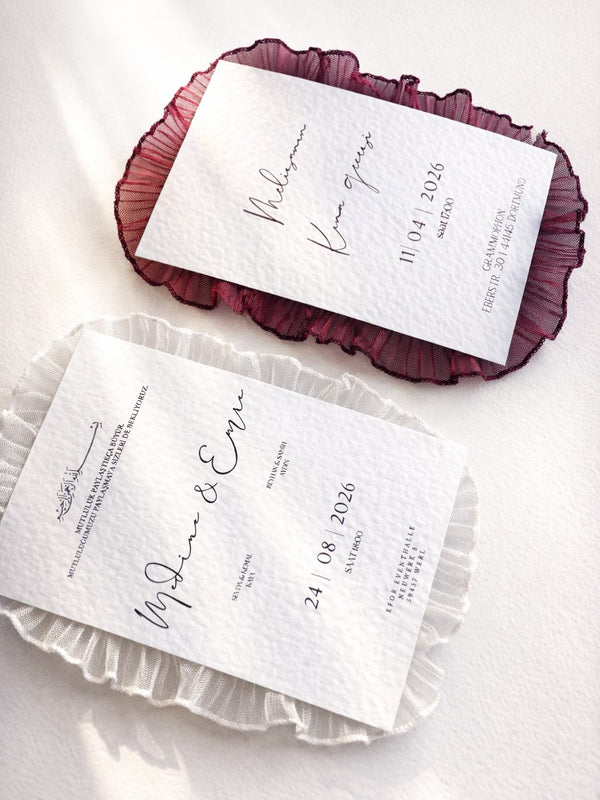 Melisanın
Kına gecesi
11 | 04 | 2026
saat 17:00
GRAMMOPHON
EBERSTR. 30 | 44145 DORTMUND
MUTLULUK PAYLAŞTIKÇA BÜYÜR
MUTLULUĞUMUZU PAYLAŞMAYA SİZLERİ DE BEKLİYORUZ
Medine & Emre
KAYA
AYDIN
24 | 08 | 2026
SAAT 18:00
EFOR EVENTHALLE
NEUWERK 5
59457 WERL